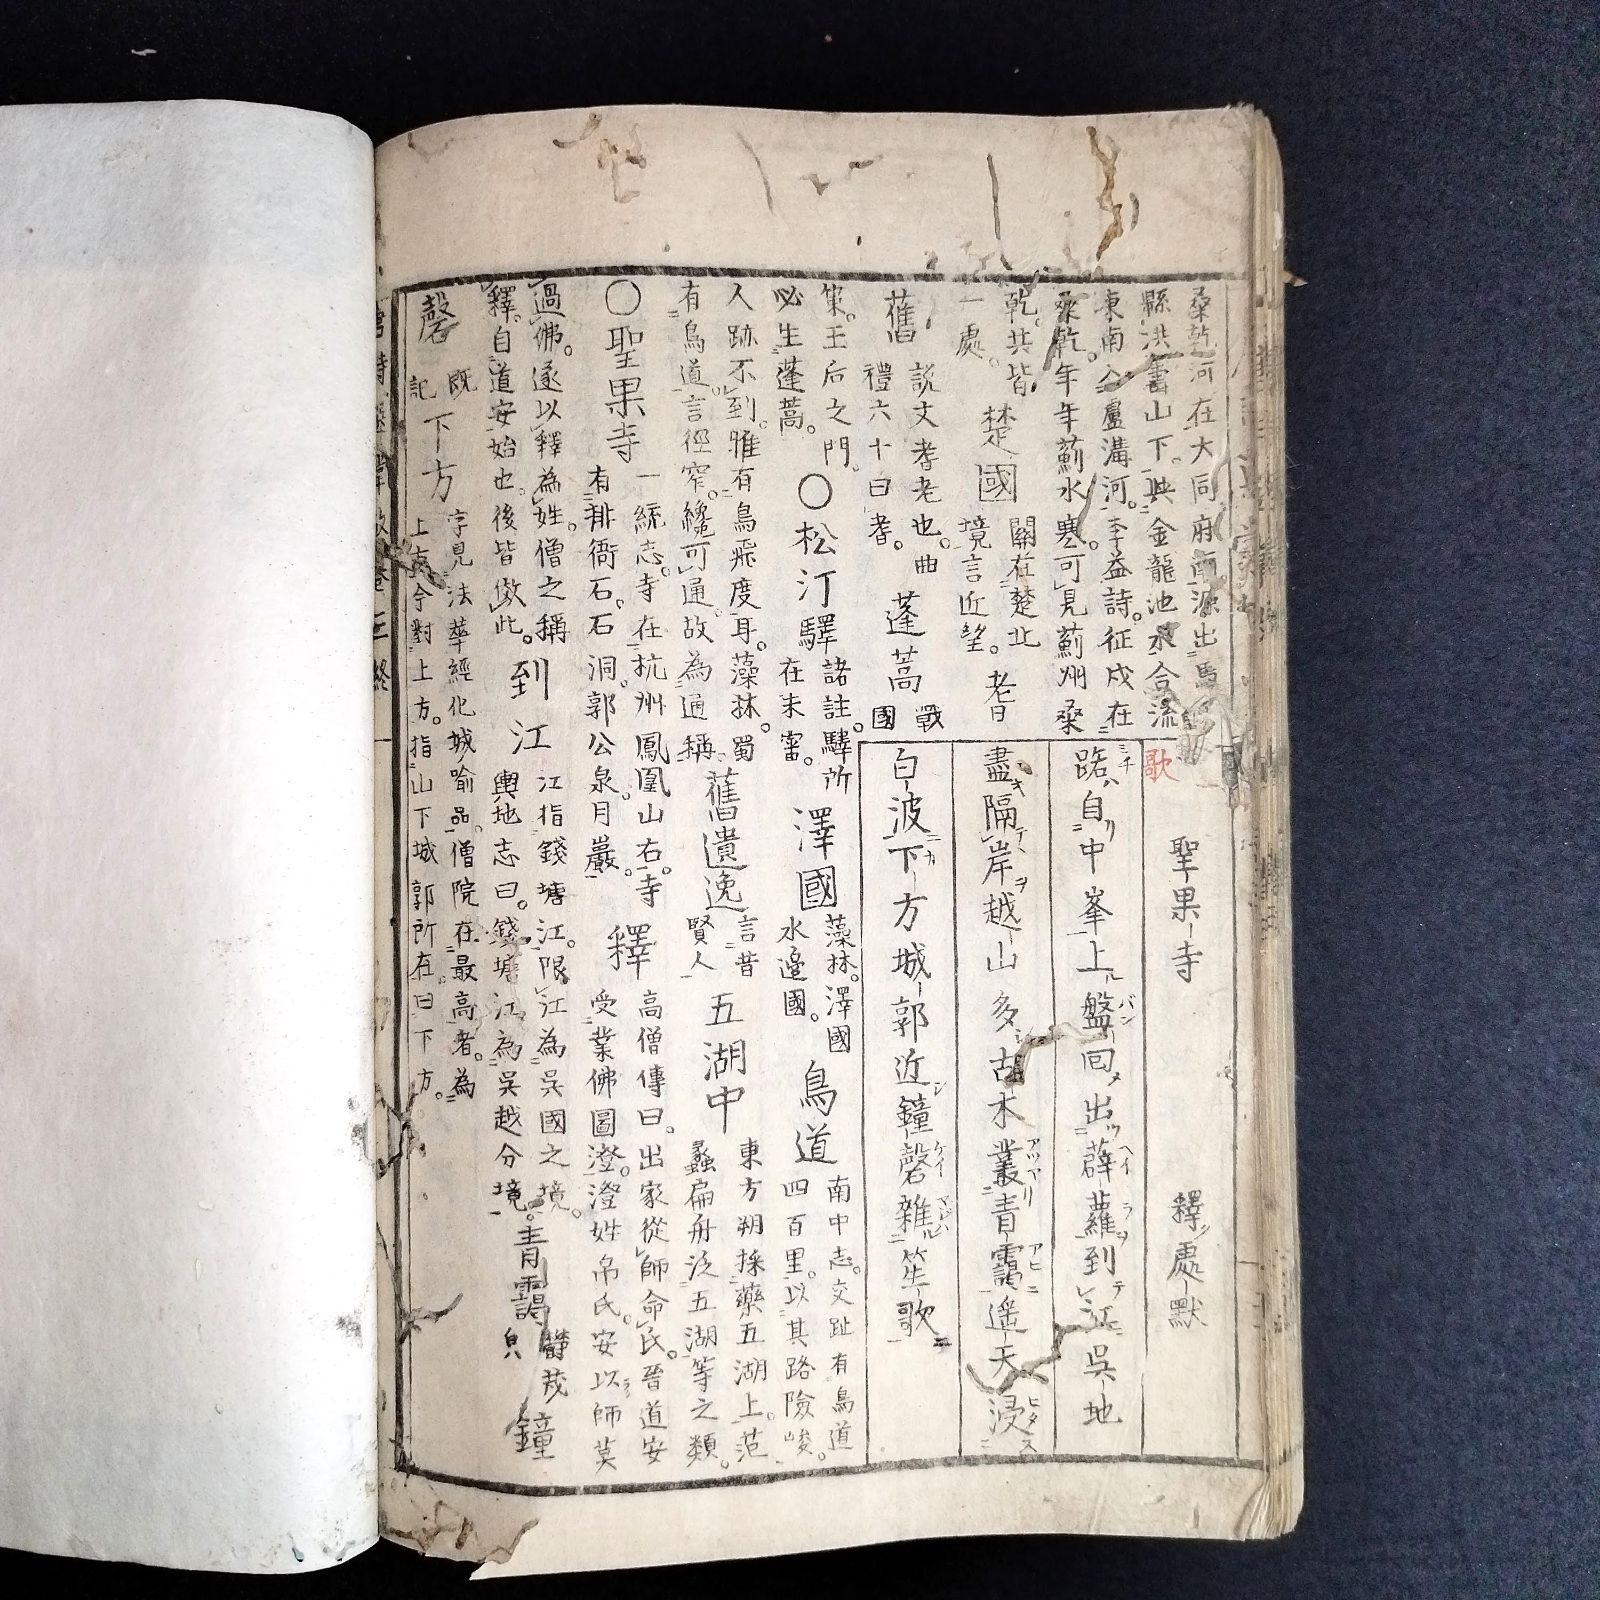 歌
聖果寺　釋處默
路自中峯上盤回出薜蘿到江吳地
盡隔岸越山多古木叢青靄遥天浸
白波下方城郭近鐘磬雜笙歌
桑乾河在大同府南源出馬邑
縣洪濤山下與金龍池水合流
東南入盧溝河。李益詩。征戍在
桑乾。年年薊水寒。可見薊州桑
乾。共皆
一處。
楚國
關在楚北
境言近望。
耆
舊
説文耆老也。曲
禮六十曰耆。
蓬蒿
戰
國
策。王后之門。
必生蓬蒿。
○松汀驛
諸註。驛所
在未審。
澤國
藻林。澤國
水邊國。
鳥道
南中志。交趾有鳥道
四百里。以其路險峻。
人跡不到。雅有鳥飛度耳。藻林。蜀
有鳥道言徑窄。纔可通。故為通稱。
舊遺逸
言昔
賢人
五湖中
東方朔採藥五湖上。范
蠡扁舟泛五湖等之類。
○聖果寺
一統志。寺在杭州鳳凰山右。寺
有排衙石。石洞。郭公泉。月巖。
釋
高僧傳曰。出家從師命氏。晉道安
受業佛圖澄。澄姓帛氏。安以師莫
過佛。遂以釋為姓。僧之稱
釋。自道安始也。後皆傚此。
到江
江指錢塘江。限江為吳國之境。
輿地志曰。錢塘江為吳越分境。
青靄
靜茂
皃
鐘
磬
既
記
下方
字見法華經化城喻品。僧院在最高者。為
上方今對上方。指山下城郭所在曰下方。